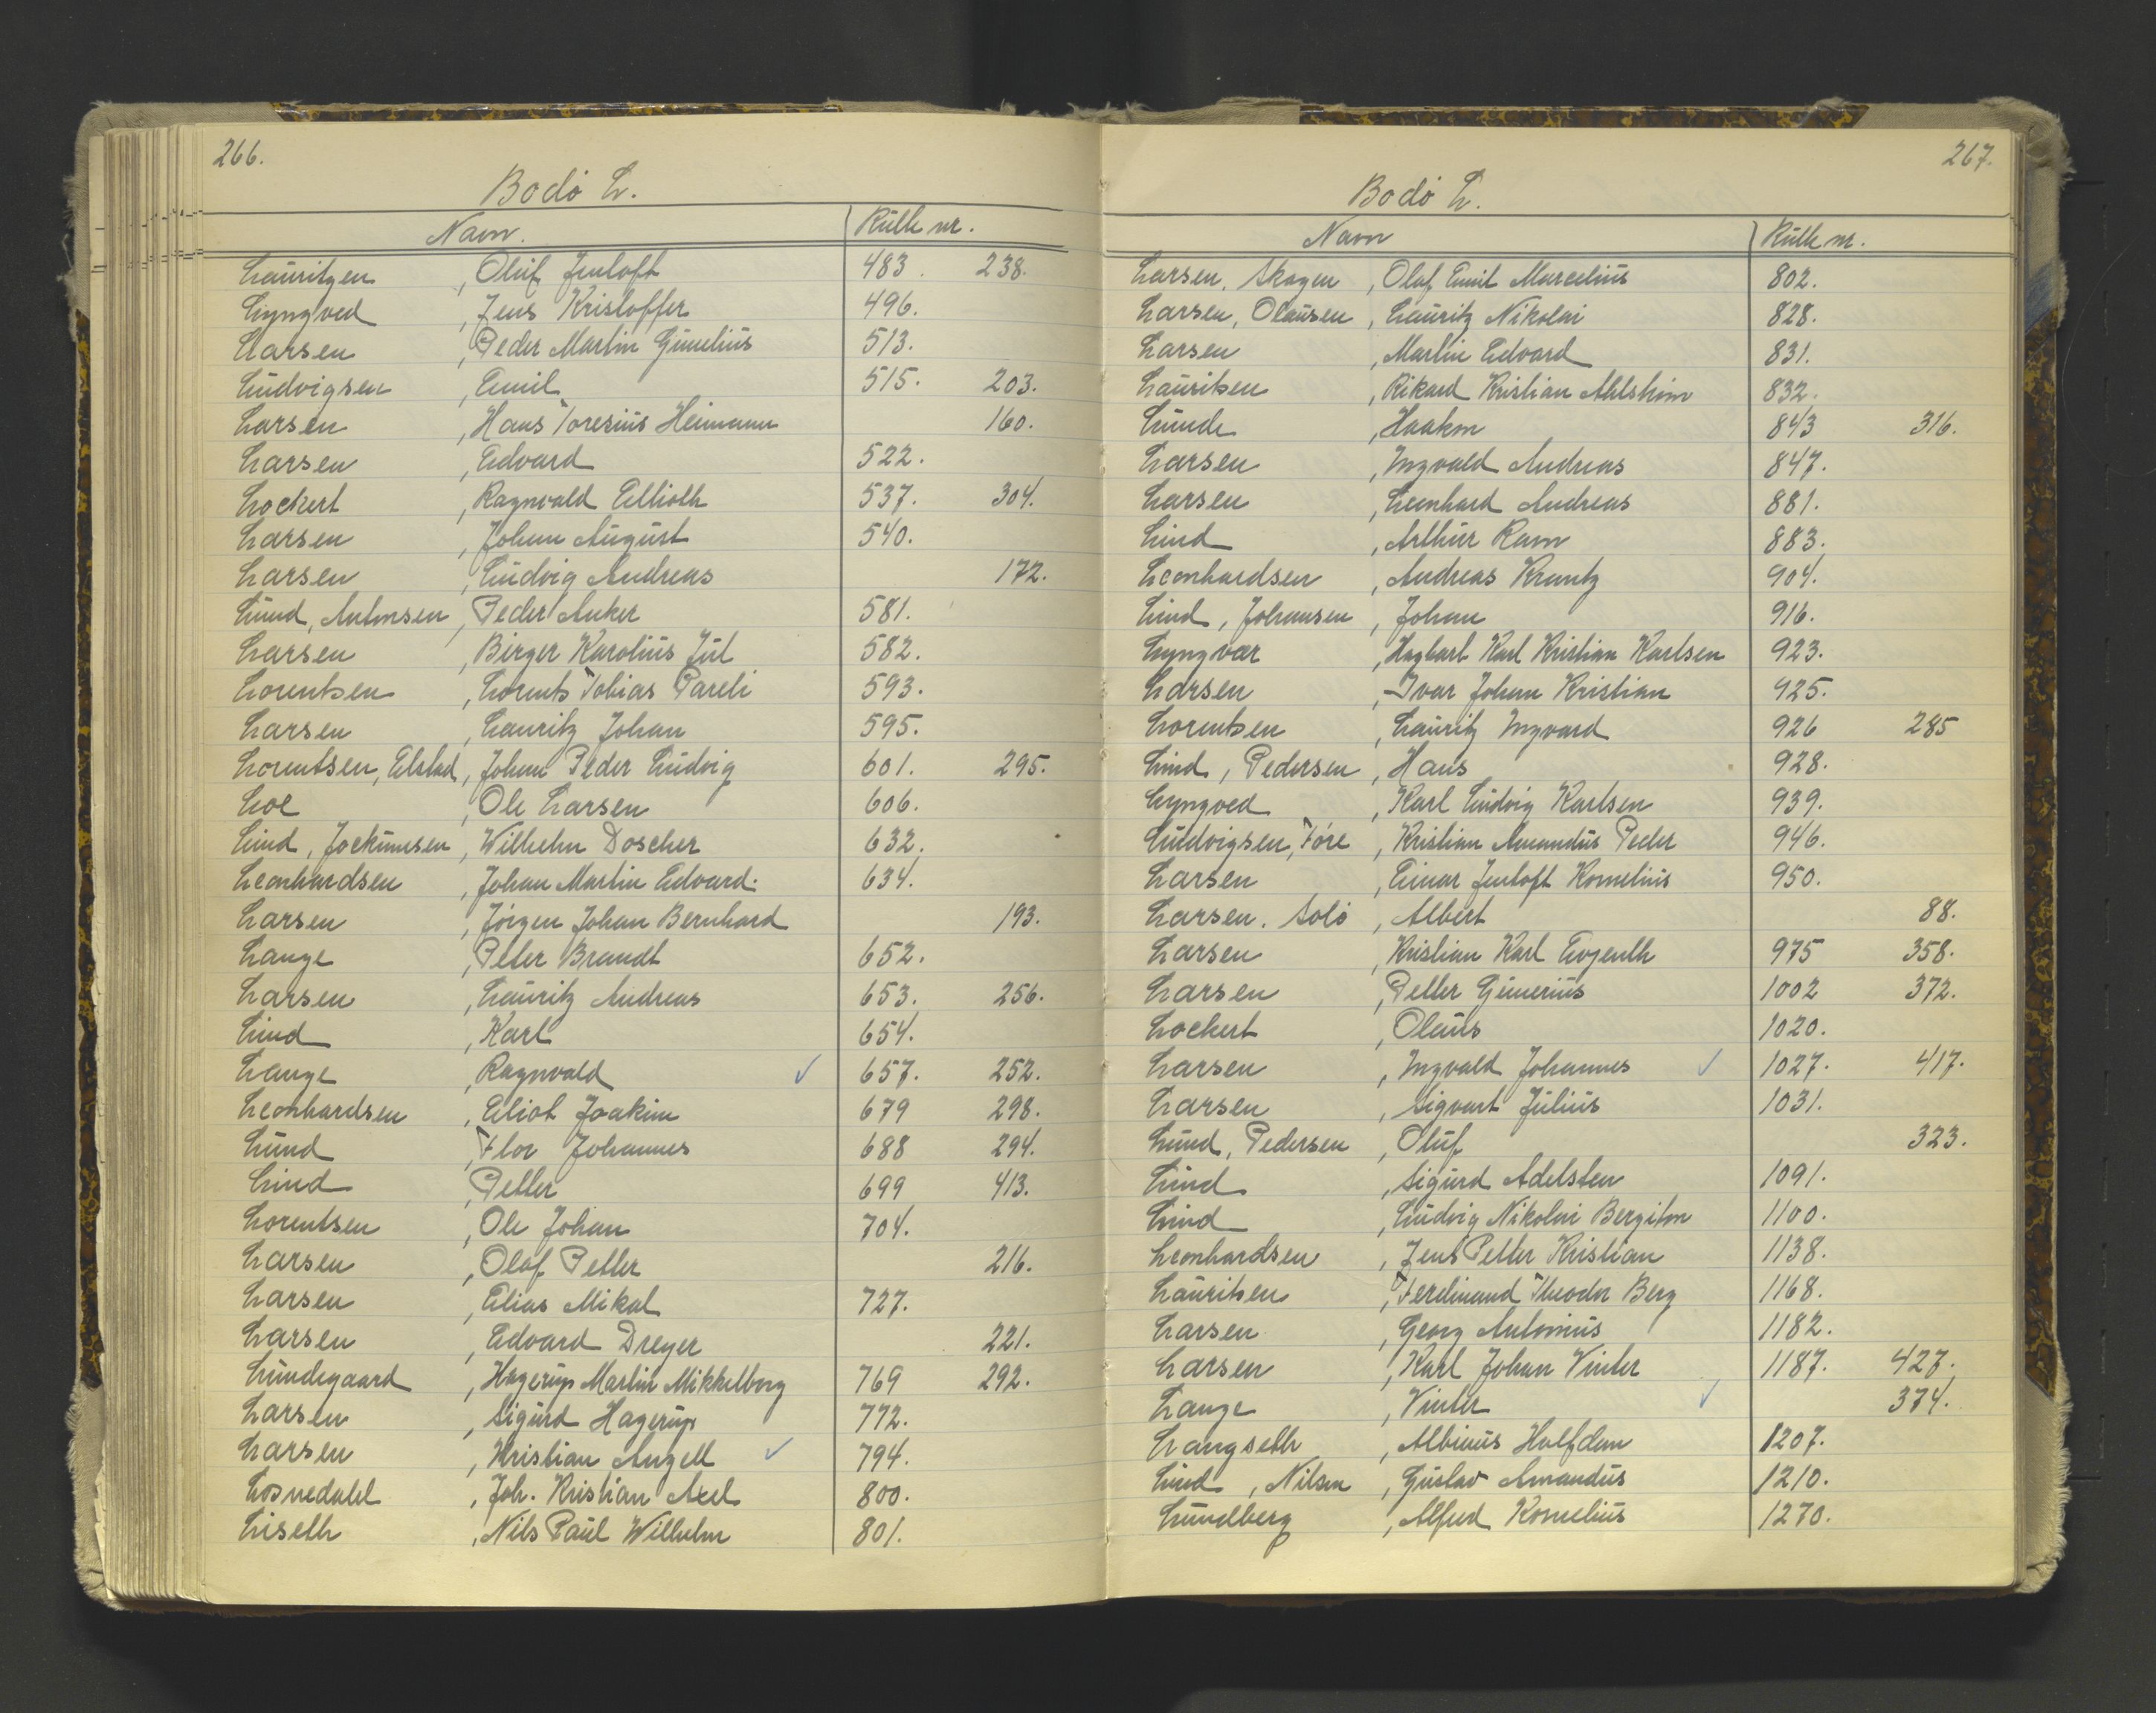 266.
Bodö L.
Navn. Rulle nr.
Lauritzen, Oluf Jentoft 483. 238.
Lyngved, Jens Kristoffer 496.
Larsen, Peder Martin Gunelius 513.
Ludvigsen, Emil 515. 203.
Larsen, Hans Toresius Heimann 160.
Larsen, Edvard 522.
Lockert, Ragnvald Ellioth 537. 304.
Larsen, Johan August 540.
Larsen, Ludvig Andreas 172.
Lund, Antonsen, Peder Anker 581.
Larsen, Birger Karolius Jul 582.
Lorentsen, Lorents Tobias Pareli 593.
Larsen, Lauritz Johan 595.
Lorentsen, Elstad, Johan Peder Ludvig 601. 295.
Loe, Ole Larsen 606.
Lind, Jockumsen, Wilhelm Doscher 632.
Leonhardsen, Johan Martin Edvard. 634.
Larsen, Jörgen Johan Bernhard 193.
Lange, Peter Brandt 652.
Larsen, Lauritz Andreas 653. 256.
Lind, Karl 654.
Lange, Ragnvald ✓ 657. 252.
Leonhardsen, Eliot Joakim 679 298.
Lund, Flor Johannes 688 294.
Lind, Petter 699 413.
Lorentsen, Ole Johan 704.
Larsen, Olaf Petter 216.
Larsen, Elias Mikal 727.
Larsen, Edvard Dreyer 221.
Lundegaard, Hagerup Martin Mikkelborg 769 292.
Larsen, Sigurd Hagerup 772.
Larsen, Kristian Angell ✓ 794.
Losnedahl, Joh. Kristian Axel 800.
Liseth, Nils Paul Wilhelm 801.
267.
Bodö L.
Navn Rulle nr.
Larsen, Skagen, Olaf Emil Marcelius 802.
Larsen, Olausen, Lauritz Nikolai 828.
Larsen, Martin Edvard 831.
Lauritsen, Rikard Kristian Ahlström 832.
Lunde, Haakon 843 316.
Larsen, Ingvald Andreas 847.
Larsen, Leonhard Andreas 881.
Lind, Arthur Ram 883.
Leonhardsen, Andreas Krantz 904.
Lind, Johansen, Johan 916.
Lyngvær, Hagbart Karl Kristian Karlsen 923.
Larsen, Ivar Johan Kristian 925.
Lorentsen, Lauritz Ingvard 926 285
Lind, Pedersen, Hans 928.
Lyngved, Karl Ludvig Karlsen 939.
Ludvigsen, Före, Kristian Amandus Peder 946.
Larsen, Einar Jentoft Kornelius 950.
Larsen, Solö, Albert 88.
Larsen, Kristian Karl Evgenth 975 358.
Larsen, Petter Gunerius 1002 372.
Lockert, Olaus 1020.
Larsen, Ingvald Johannes ✓ 1027. 417.
Larsen, Sigvart Julius 1031.
Lund, Pedersen, Oluf 323.
Lind, Sigurd Adelsten 1091.
Lind, Ludvig Nikolai Bergiton 1100.
Leonhardsen, Jens Petter Kristian 1138.
Lauritsen, Ferdinand Theodor Berg 1168.
Larsen, Georg Antonius 1182.
Larsen, Karl Johan Vinter 1187. 427.
Lange, Vinter ✓ 374.
Langseth, Albinus Halfdan 1207.
Lind, Nilsen, Gustav Amandus 1210.
Lundberg, Alfred Kornelius 1270.